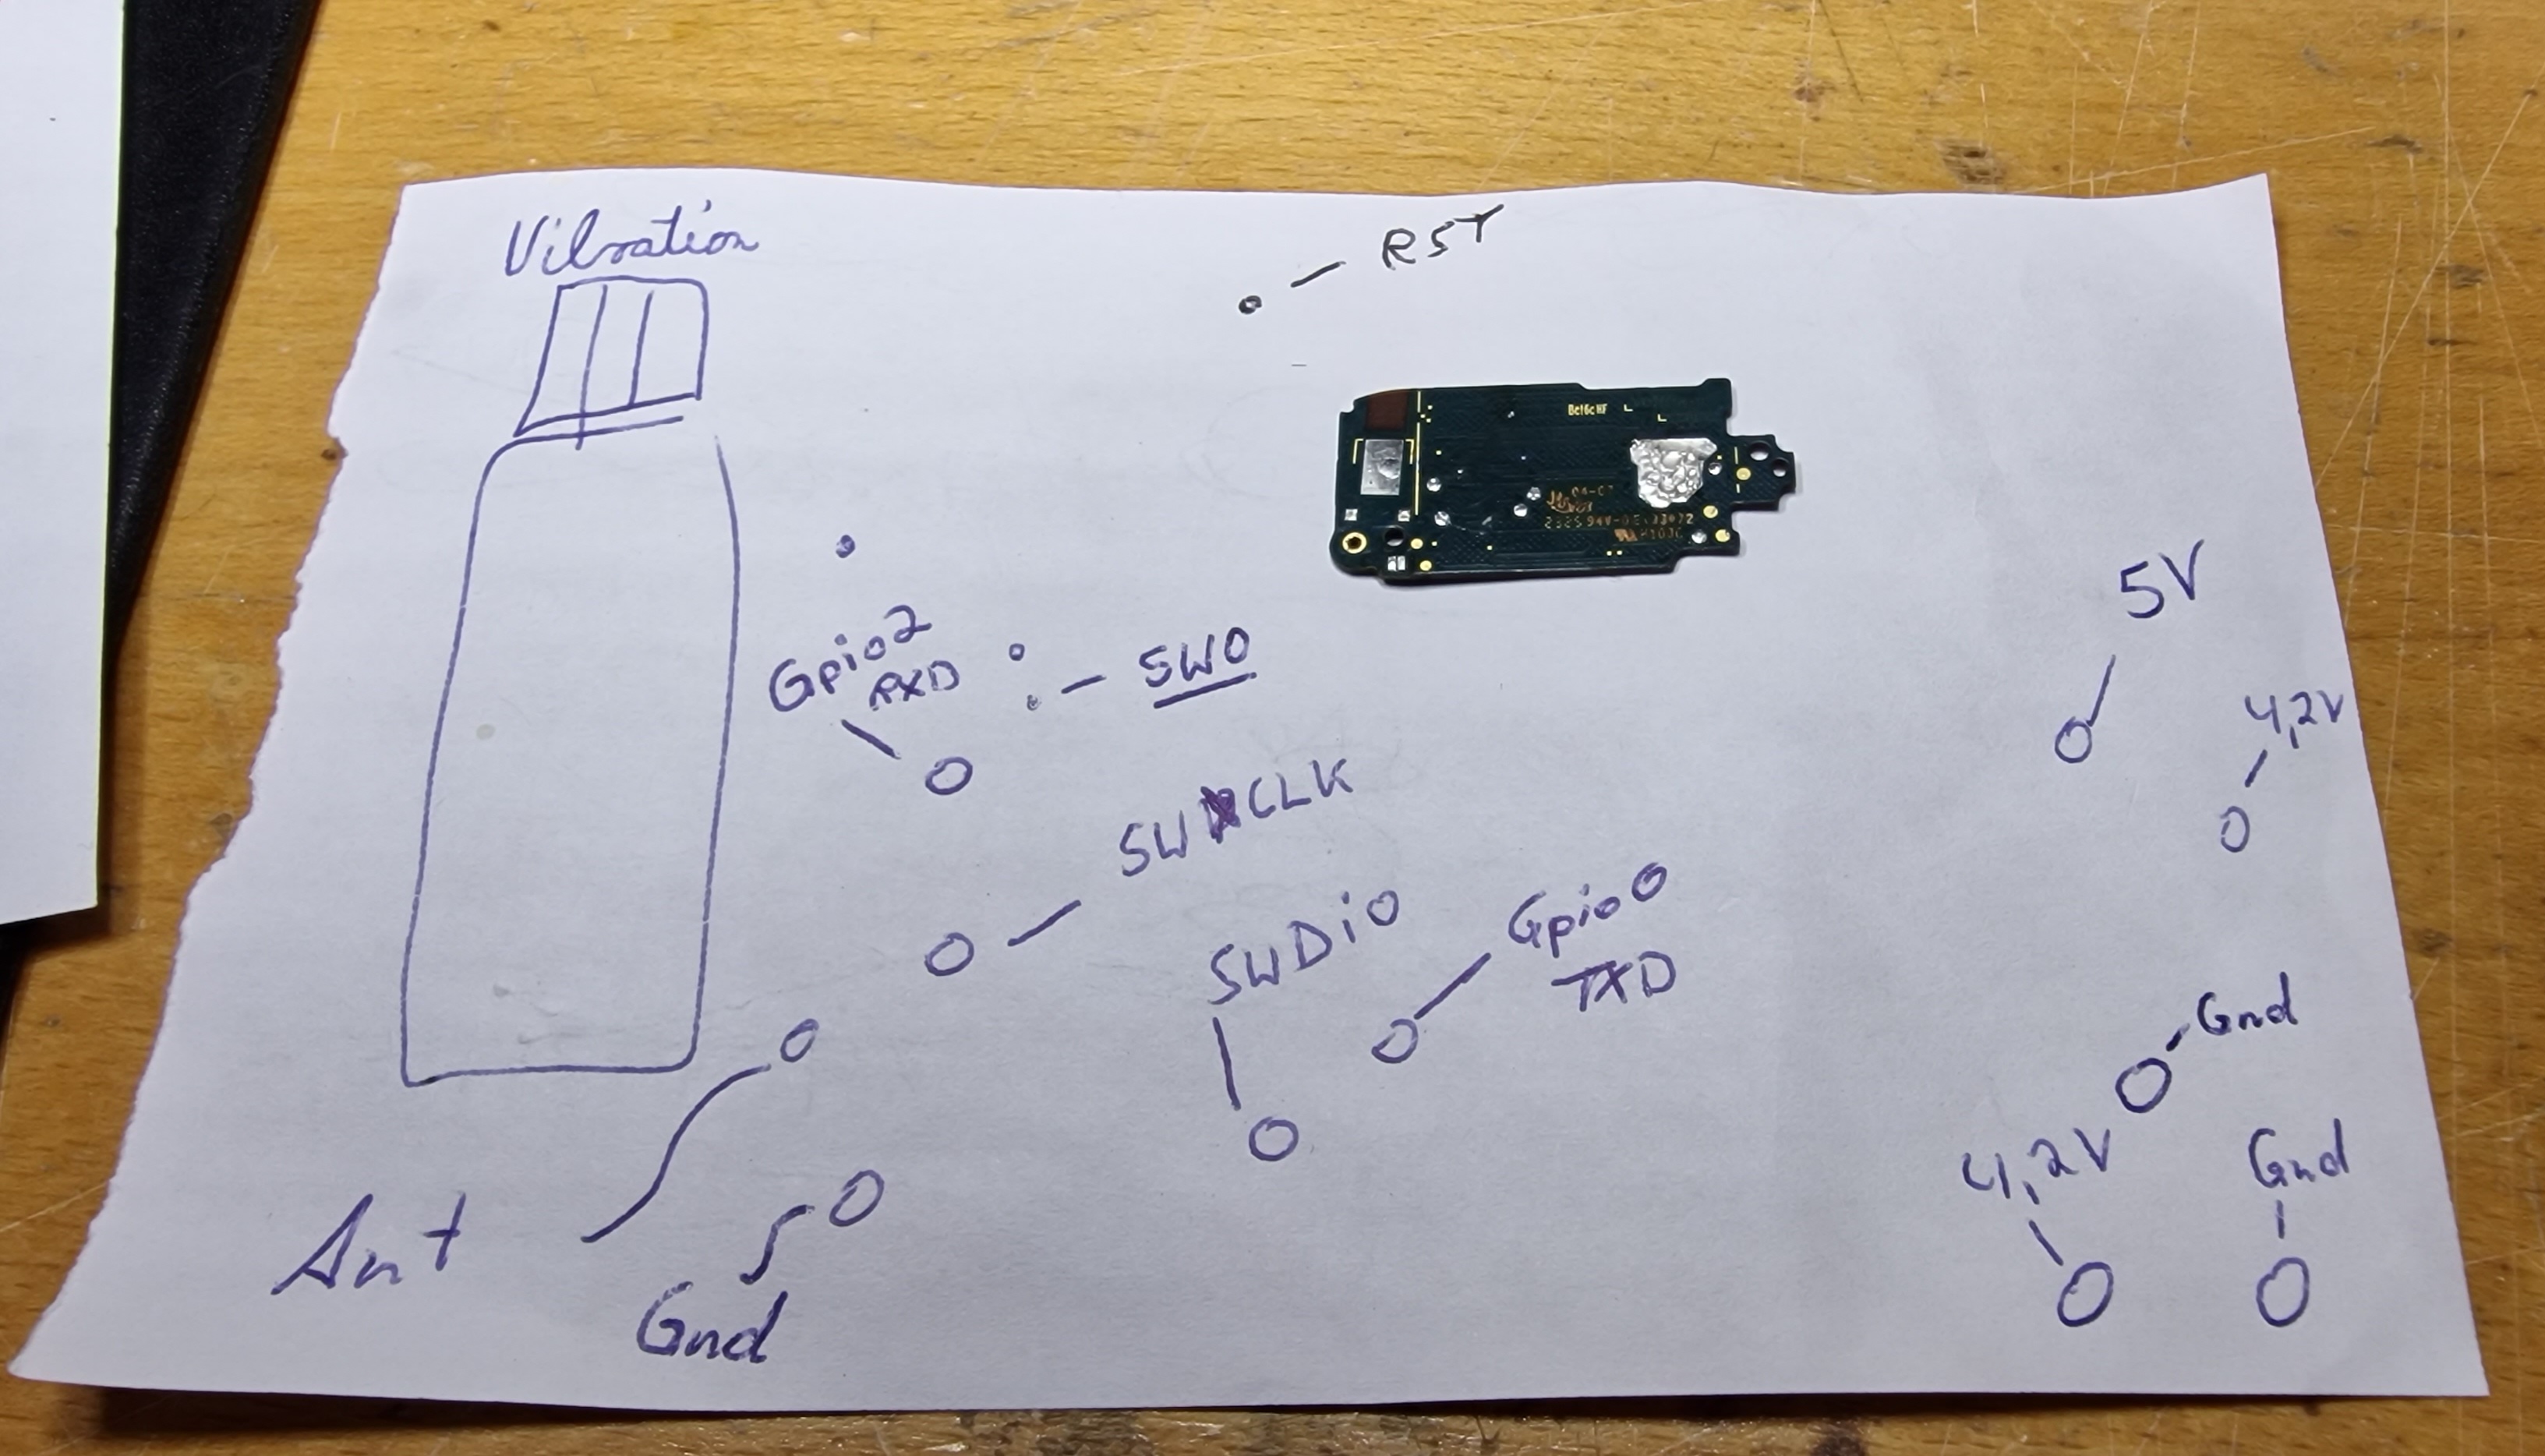 Vibration
RST
Be16c HF
5V
Gpio2
RXD
SWO
4,2V
SWCLK
Gpio0
TXD
SWDiO
Gnd
4,2V
Gnd
Ant
Gnd